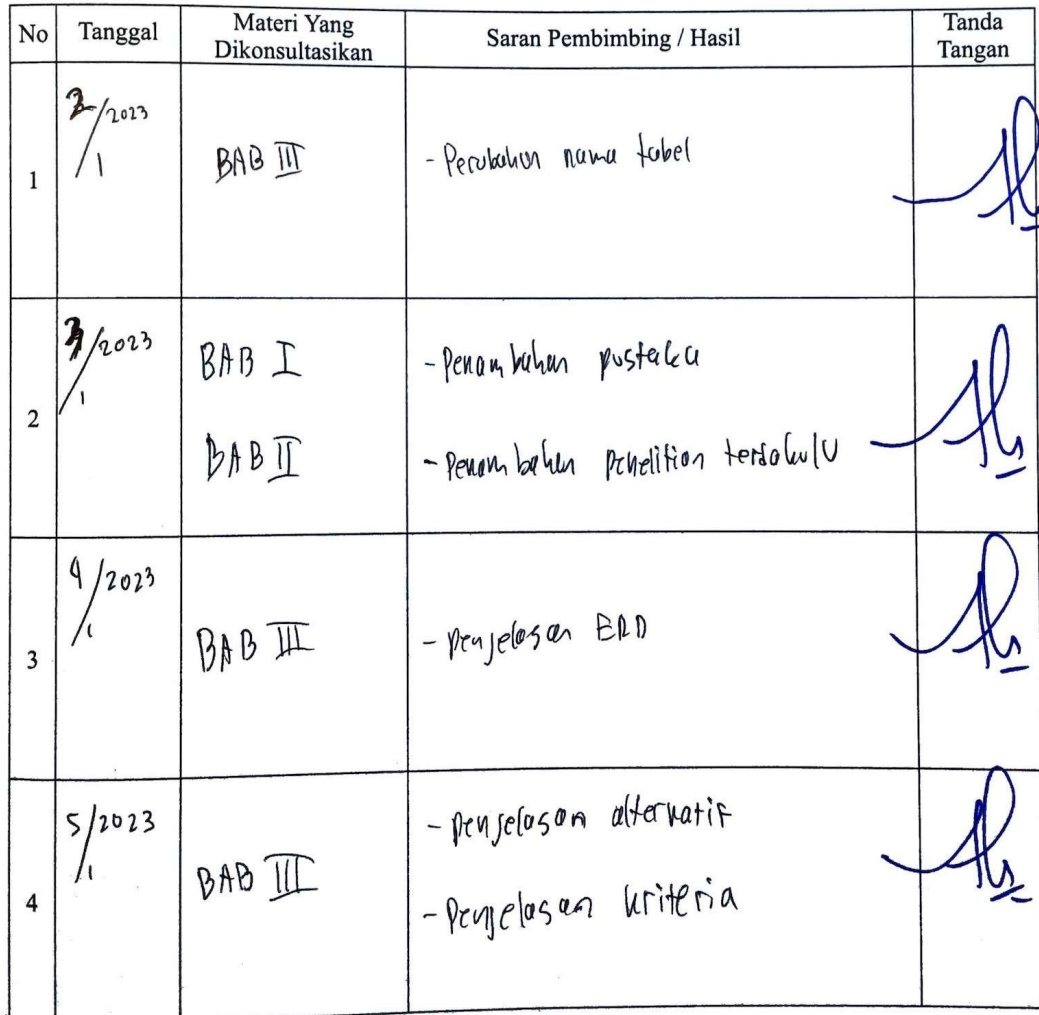 No Tanggal Materi Yang Dikonsultasikan Saran Pembimbing / Hasil Tanda Tangan
1 2/1 2023 BAB III - Perubahan nama tabel
2 3/1 2023 BAB I - Penambahan pustaka
BAB II - Penambahan penelitian terdahulu
3 4/1 2023 BAB III - Penjelasan ERD
4 5/1 2023 BAB III - Penjelasan alternatif
- Penjelasan kriteria